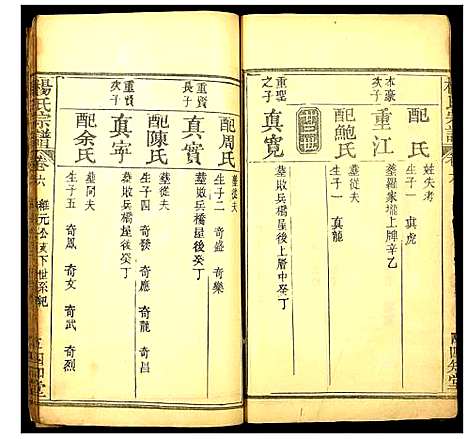 配氏
姓失考
生子一 真虎
本豪
次子
重江
墓羅家壋上牌辛乙
配鮑氏
生子一 真龍
重聖
之子
真寬
墓敗兵橋屋後上層中癸丁
配周氏
墓從夫
生子二 奇盛 奇樂
重賢
長子
真實
墓敗兵橋屋後癸丁
配陳氏
墓從夫
生子四 奇發 奇應 奇龍 奇昌
重賢
次子
真寧
墓敗兵橋屋後癸丁
配余氏
墓同夫
生子五 奇鳳 奇文 奇武 奇烈
楊氏宗譜
卷六
世系紀
四知堂